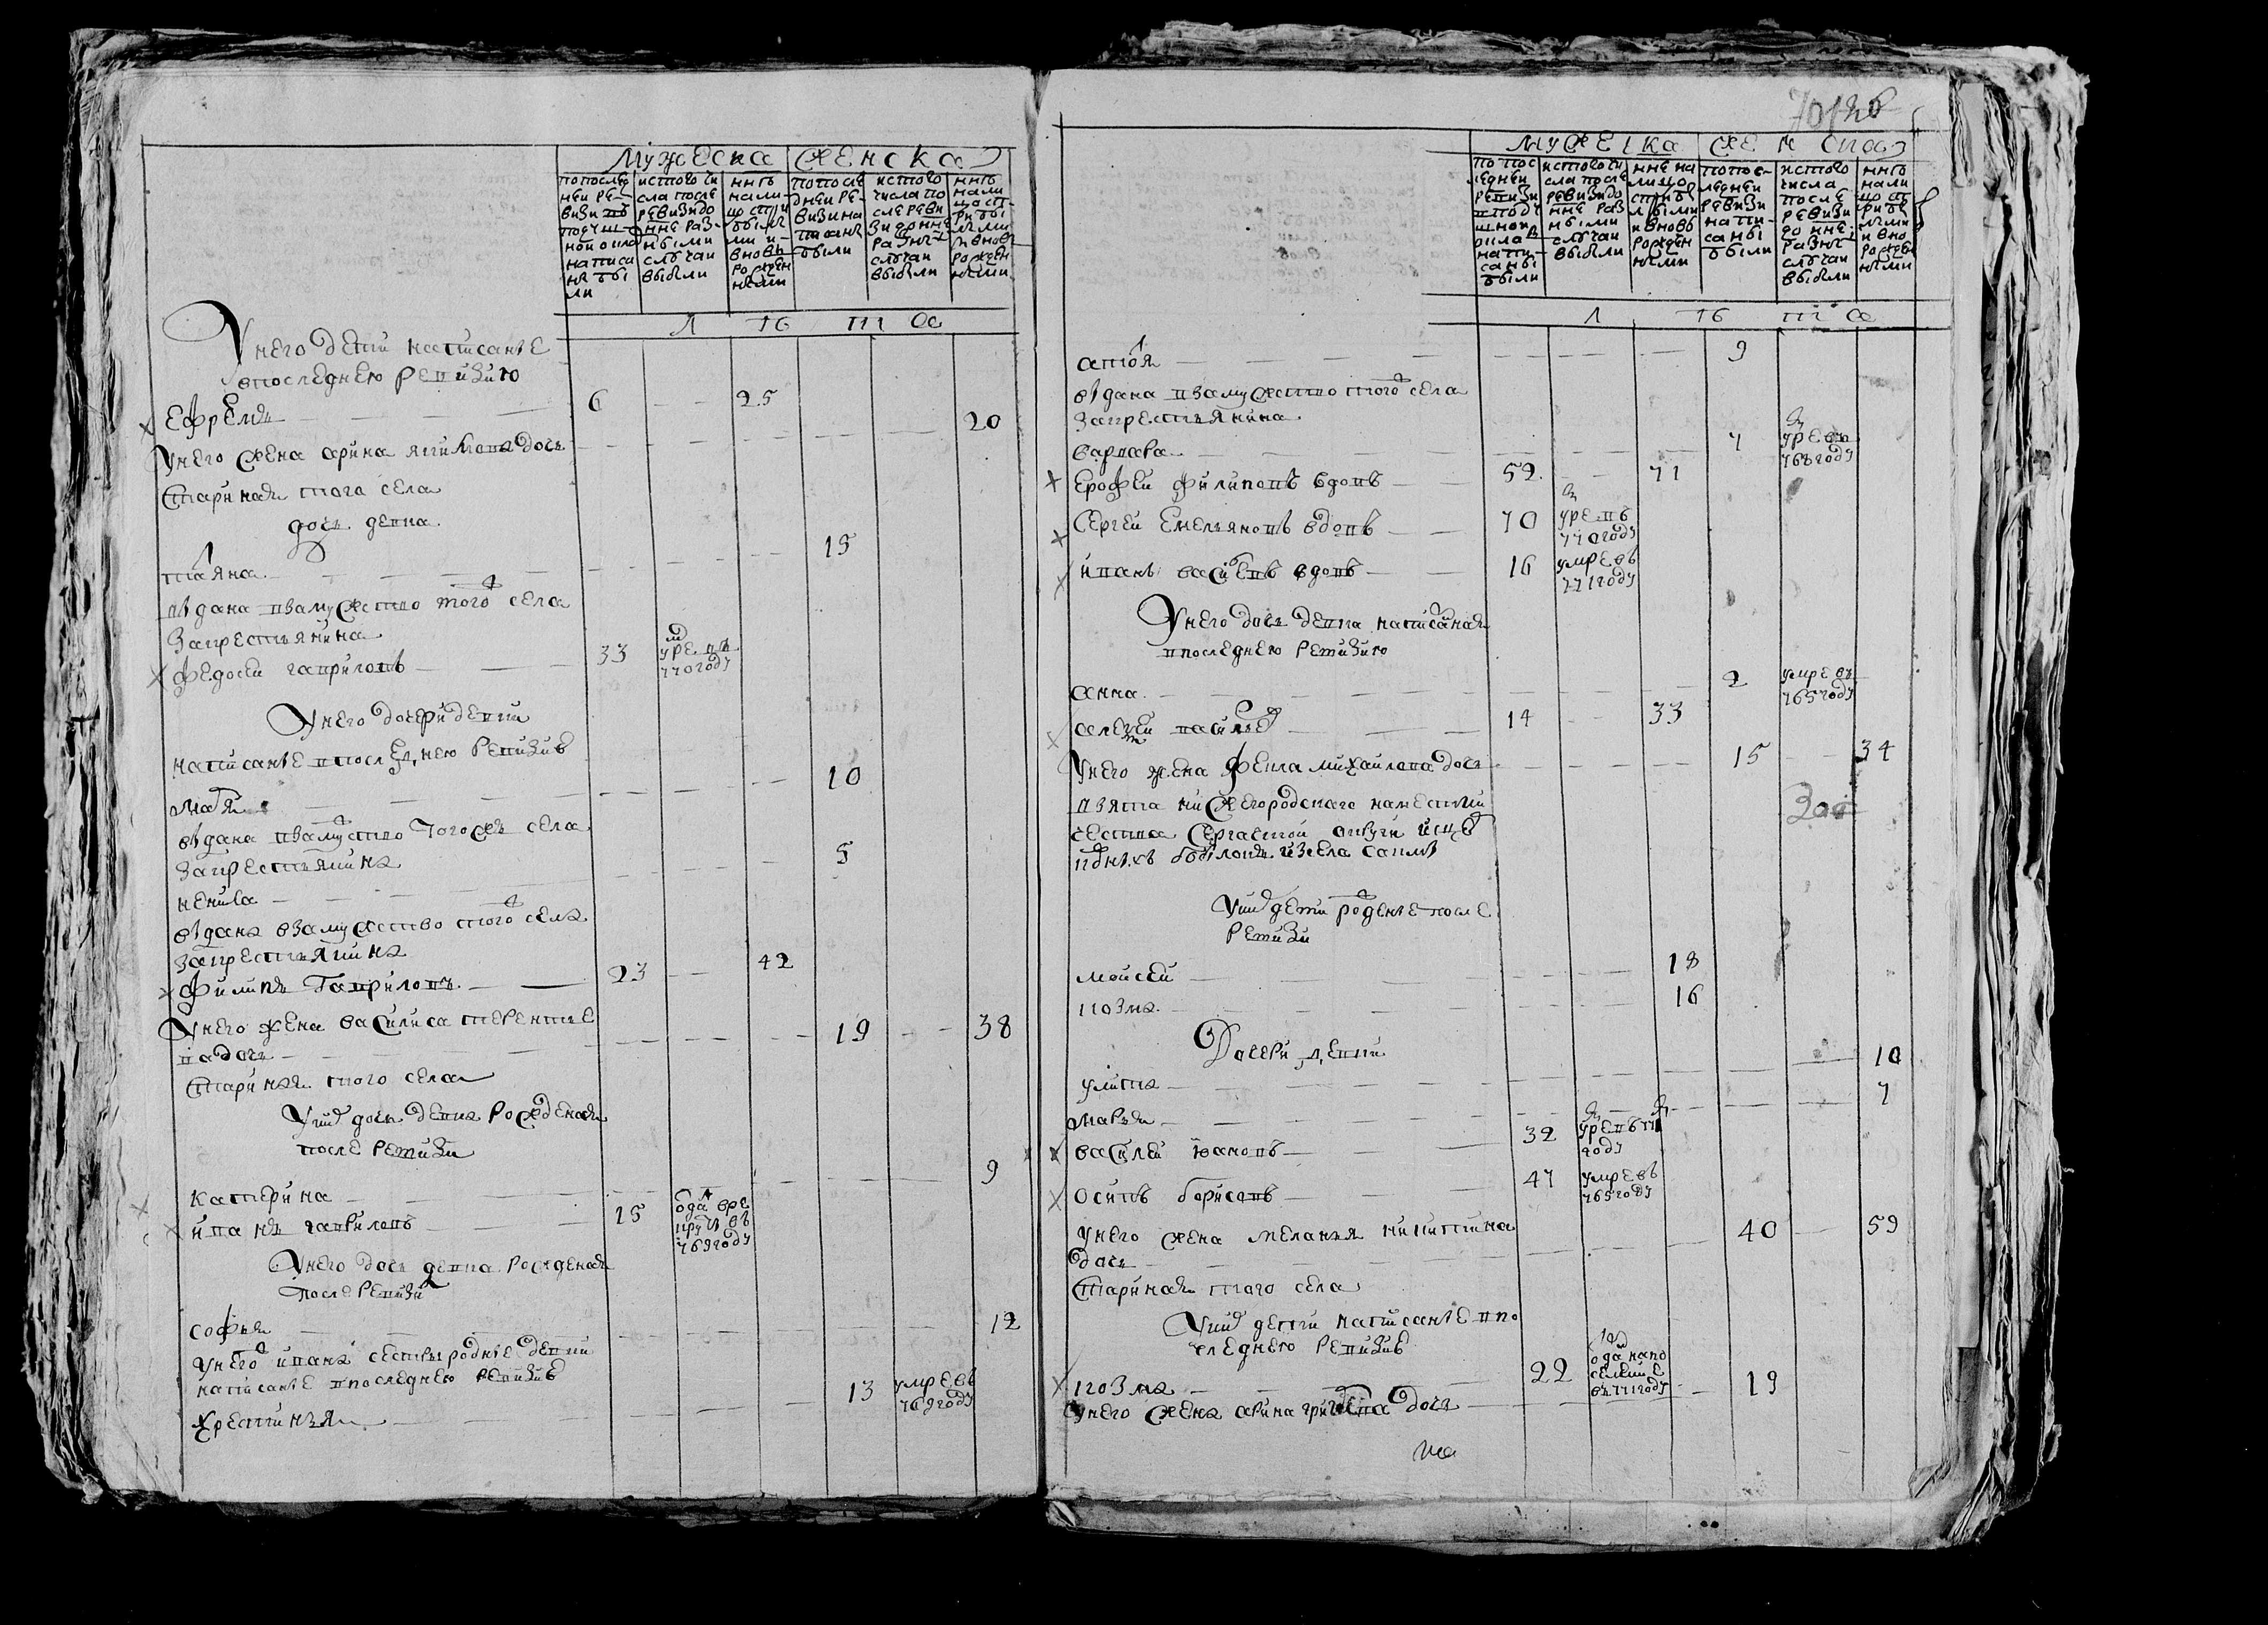 Мужеска Женска
по послед
ней ре-
визи въ
подуш-
ной окла
написа
ны бы
ли
ис того чи
сла после
ревизи до
ныне раз-
ными
случаи
выбыли
ныне
нали-
цо с при
былы
ми и-
вновь
рожден
ными
по после
дней ре-
визи на
писаны
были
ис того
числа по
сле реви
зи до ныне
разны
случаи
выбыли
ныне
нали
цо с п-
рибы
лыми
и вновь
рожден
ными
Л ѣ т а
У него дети написание
в последнею ревизию
Ефремъ 6 25
У него жена Арина дочь 20
Стариная того села
дочь девка
Татьяна 15
выдана в замужство того села
за крестьянина
Федосей Гавриловъ 33 умре въ 770 году
У него дочери девки
написание в последнею ревизию
Марья 10
выдана в замужство того жъ села
за крестьянина
Ненила 5
выдана в замужство того села
за крестьянина
Филипъ Гавриловъ 23 42
У него жена Василиса Терентье
ва дочь 19 38
Старинная того села
У них дочь девка рожденая
после ревизи
Катерина 9
Иванъ Гавриловъ 15 одан в ре круты въ 769 году
У него дочь девка рожденая
после ревизи
Софья 12
У него Ивана сестры родные девки
написание в последнею ревизию
Хрестинья 13 умре въ 769 году
701
Мужеска Женска
по пос
ледней
ревизи
в поду
шной
окла
напи-
саны
были
ис того чи
сла после
ревизи до
ныне раз
ными
случаи
выбыли
ныне на
лицо с
прибы
лыми
и вновь
рожден
ными
по пос-
ледней
ревизи
напи-
саны
были
ис того
числа
после
ревизи
до ныне
разны
случаи
выбыли
ныне
нали
цо с п
рибы
лыми
и вно
рожден
ными
Л ѣ т а
9
выдана в замужство того села
за крестьянина
Варвара 7 умре въ 768 году
Ерофей Филиповъ вдовъ 52 71
Сергей Емельяновъ вдовъ 70 умре въ 770 году
Иванъ вдовъ 16 умре въ 771 году
У него дочь девка написаная
в последнею ревизию
Анна 2 умре въ 765 году
Алексей Васильев 14 33
У него жена Фекла Михайлова дочь 15 34
взята Нижегородскаго наместни
чества Сергацкой округи
из села
У них дети рожденые после
ревизи
Мойсей 18
Козма 16
Дочери девки
Улита 10
Марья 7
Василей Ивановъ 32 умре въ году
Осипъ Борисовъ 47 умре въ 765 году
У него жена Меланья Никитина
дочь 40 59
Старинная того села
У них дети написание в по
следнею ревизию
Козма 22 одан на по селение въ 771 году
У него жена Арина дочь 19